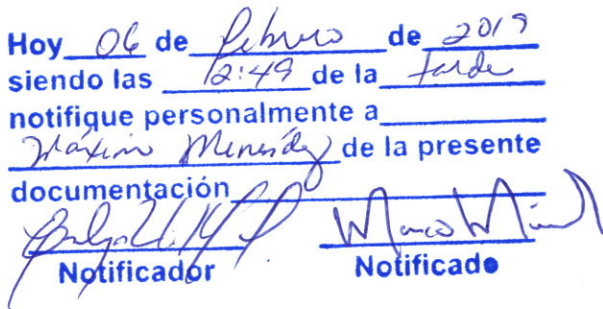 Hoy 06 de febrero de 2019
siendo las 12:49 de la tarde
notifique personalmente a
Máximo Menéndez de la presente
documentación
Notificador Notificado